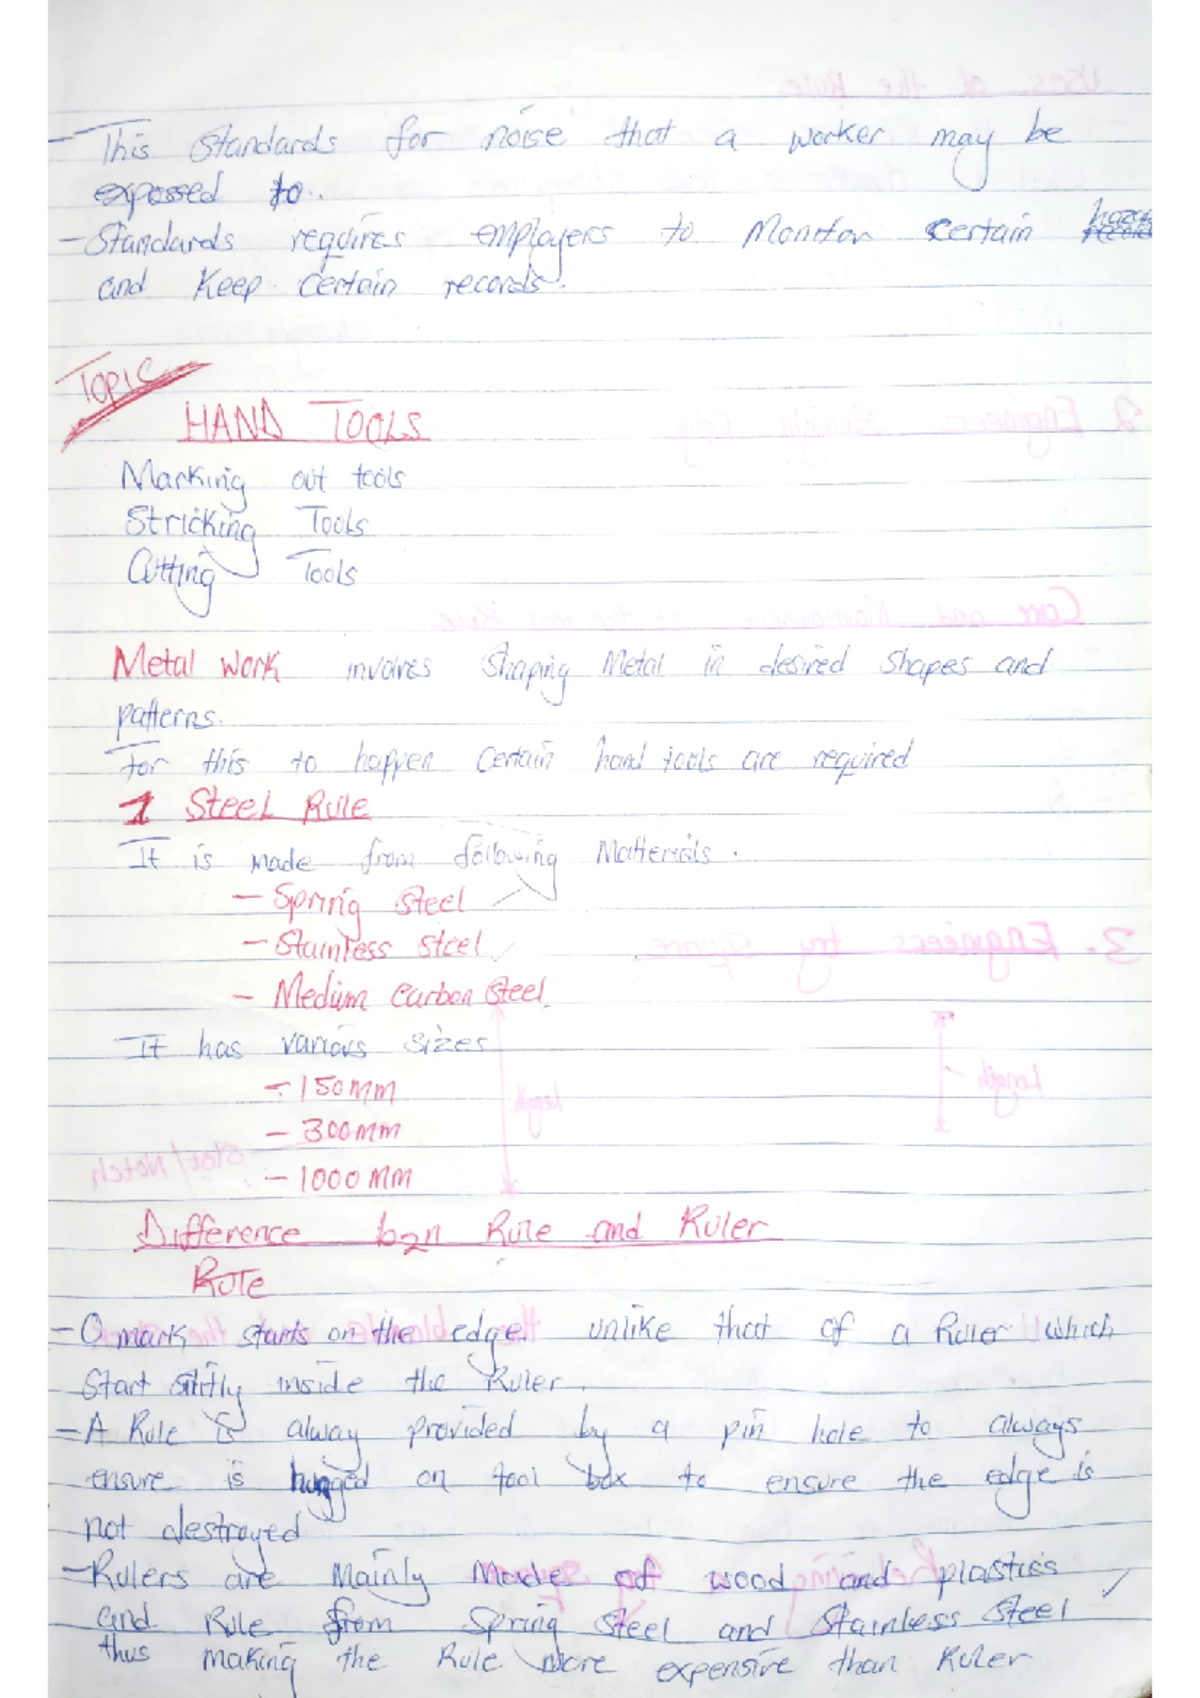 - This Standards for noise that a worker may be
expossed to.
- Standards requires employers to Monitor Certain
and Keep certain records.
Topic
HAND TOOLS
Marking out tools
Stricking Tools
Cutting Tools
Metal work involves Shaping Metal in desired shapes and
patterns.
For this to happen certain hand tools are required
1 Steel Rule
It is made from following Matterials.
- Spring steel
- Stainless steel
- Medium carbon steel
It has various sizes
- 150mm
- 300mm
- 1000mm
Difference b2n Rule and Ruler
Rule
- O mark starts on the edge unlike that of a Ruler which
start slitly inside the Ruler.
- A Rule is alway provided by a pin hole to always
ensure is hugged on tool box to ensure the edge is
not destroyed
- Rulers are Mainly Mades of wood and plastics
and Rule from Spring Steel and Stainless Steel
thus making the Rule more expensive than Ruler